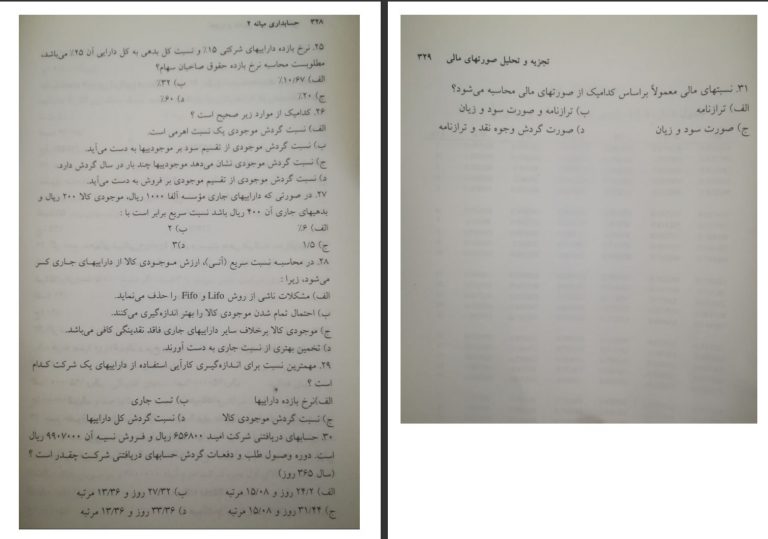 ۳۲۸ حسابداری میانه ۲
۲۵. نرخ بازده داراییهای شرکتی ۱۵٪ و نسبت کل بدهی به کل دارایی آن ۲۵٪ می‌باشد،
مطلوبست محاسبه نرخ بازده حقوق صاحبان سهام؟
الف) ۱۰/۶۷٪ ب) ۳۲٪
ج) ۲۰٪ د) ۶۰٪
۲۶. کدامیک از موارد زیر صحیح است ؟
الف) نسبت گردش موجودی یک نسبت اهرمی است.
ب) نسبت گردش موجودی از تقسیم سود بر موجودیها به دست می‌آید.
ج) نسبت گردش موجودی نشان می‌دهد موجودیها چند بار در سال گردش دارد.
د) نسبت گردش موجودی از تقسیم موجودی بر فروش به دست می‌آید.
۲۷. در صورتی که داراییهای جاری مؤسسه آلفا ۱۰۰۰ ریال، موجودی کالا ۲۰۰ ریال و
بدهیهای جاری آن ۴۰۰ ریال باشد نسبت سریع برابر است با :
الف) ۶٪ ب) ۲
ج) ۱/۵ د) ۳
۲۸. در محاسبه نسبت سریع (آنی)، ارزش موجودی کالا از داراییهای جاری کسر
می‌شود، زیرا :
الف) مشکلات ناشی از روش Lifo و Fifo را حذف می‌نماید.
ب) احتمال تمام شدن موجودی کالا را بهتر اندازه‌گیری می‌کنند.
ج) موجودی کالا برخلاف سایر داراییهای جاری فاقد نقدینگی کافی می‌باشد.
د) تخمین بهتری از نسبت جاری به دست آورند.
۲۹. مهمترین نسبت برای اندازه‌گیری کارآیی استفاده از داراییهای یک شرکت کدام
است ؟
الف) نرخ بازده داراییها ب) تست جاری
ج) نسبت گردش موجودی کالا د) نسبت گردش کل داراییها
۳۰. حسابهای دریافتنی شرکت امید ۶۵۶۸۰۰ ریال و فروش نسیه آن ۹۹۰۷۰۰۰ ریال
است. دوره وصول طلب و دفعات گردش حسابهای دریافتنی شرکت چقدر است ؟
(سال ۳۶۵ روز)
الف) ۲۴/۲ روز و ۱۵/۰۸ مرتبه ب) ۲۷/۳۲ روز و ۱۳/۳۶ مرتبه
ج) ۳۱/۴۴ روز و ۱۵/۰۸ مرتبه د) ۳۳/۳۶ روز و ۱۳/۳۶ مرتبه
تجزیه و تحلیل صورتهای مالی ۳۲۹
۳۱. نسبتهای مالی معمولاً براساس کدامیک از صورتهای مالی محاسبه می‌شود؟
الف) ترازنامه ب) ترازنامه و صورت سود و زیان
ج) صورت سود و زیان د) صورت گردش وجوه نقد و ترازنامه